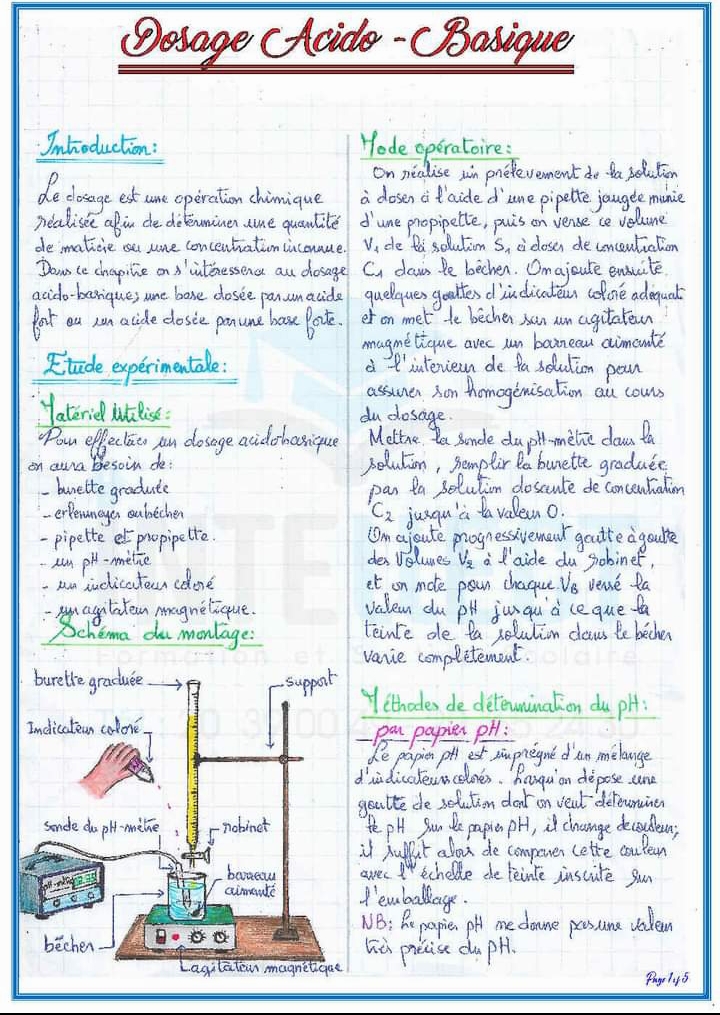 Dosage Acido-Basique
Introduction:
Le dosage est une opération chimique
réalisée afin de déterminer une quantité
de matière ou une concentration inconnue.
Dans ce chapitre on s'intéressera au dosage
acido-basique; une base dosée par un acide
fort ou un acide dosée par une base forte.
Etude expérimentale:
Matériel Utilisé:
Pour effectuer un dosage acidobasique
on aura besoin de:
- burette graduée
- erlenmeyer ou bécher
- pipette et propipette.
- un pH-mètre
- un indicateur coloré
- un agitateur magnétique.
Schéma du montage:
burette graduée
support
Indicateur coloré
sonde du pH-mètre
robinet
pH-mètre
barreau
aimanté
bécher
agitateur magnétique
Mode opératoire:
On réalise un prélèvement de la solution
à doser à l'aide d'une pipette jaugée munie
d'une propipette, puis on verse ce volume
V1 de la solution S1 à doser de concentration
C1 dans le bécher. On ajoute ensuite
quelques gouttes d'indicateur coloré adéquat
et on met le bécher sur un agitateur
magnétique avec un barreau aimanté
à l'intérieur de la solution pour
assurer son homogénisation au cours
du dosage.
Mettre la sonde du pH-mètre dans la
solution, remplir la burette graduée
par la solution dosante de concentration
C2 jusqu'à la valeur 0.
On ajoute progressivement goutte à goutte
des Volumes V2 à l'aide du robinet,
et on note pour chaque VB versé la
valeur du pH jusqu'à ce que la
teinte de la solution dans le bécher
varie complètement.
Méthodes de détermination du pH:
- par papier pH:
Le papier pH est imprégné d'un mélange
d'indicateurs colorés. Lorsqu'on dépose une
goutte de solution dont on veut déterminer
le pH sur le papier pH, il change de couleur;
il suffit alors de comparer cette couleur
avec l'échelle de teinte inscrite sur
l'emballage.
NB: Le papier pH ne donne pas une valeur
très précise du pH.
Page 1 of 5